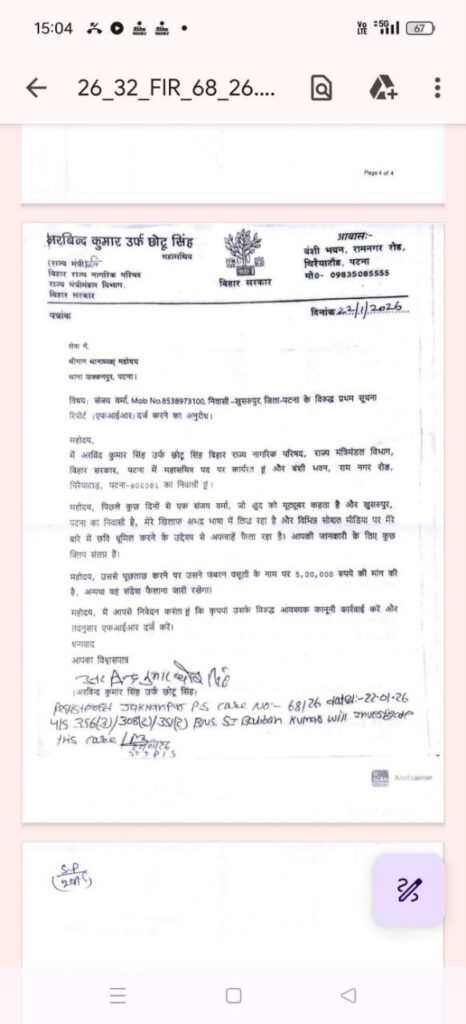 15:04
Vo LTE 5G 67
26_32_FIR_68_26....
Page 4 of 4
अरविन्द कुमार उर्फ छोटू सिंह
महासचिव
(राज्य मंत्री
बिहार राज्य नागरिक परिषद
राज्य मंत्रीमंडल विभाग,
बिहार सरकार
बिहार सरकार
आवासः-
बंशी भवन, रामनगर रोड,
चिरैयाटाँड, पटना
मो०- 09835085555
पत्रांक
दिनांक 22/1/2026
सेवा में,
श्रीमान थानाध्यक्ष महोदय
थाना जक्कनपुर, पटना।
विषयः संजय वर्मा, Mob No.8538973100, निवासी –खुसरुपुर, जिला-पटना के विरुद्ध प्रथम सूचना
रिपोर्ट (एफआईआर) दर्ज करने का अनुरोध।
महोदय,
में अरविंद कुमार सिंह उर्फ छोटू सिंह बिहार राज्य नागरिक परिषद, राज्य मंत्रिमंडल विभाग,
बिहार सरकार, पटना में महासचिव पद पर कार्यरत हूं और बंशी भवन, राम नगर रोड,
चिरैयाटाड़, पटना-800001 का निवासी हूं।
महोदय, पिछले कुछ दिनों से एक संजय वर्मा, जो खुद को यूट्यूबर कहता है और खुसरुपुर,
पटना का निवासी है, मेरे खिलाफ अभद्र भाषा में लिख रहा है और विभिन्न सोशल मीडिया पर मेरे
बारे में छवि धूमिल करने के उद्देश्य से अफवाहें फैला रहा है। आपकी जानकारी के लिए कुछ
क्लिप संलग्न है।
महोदय, उससे पूछताछ करने पर उसने जबरन वसूली के नाम पर 5,00,000 रुपये की मांग की
है, अन्यथा वह संदेश फैलाना जारी रखेगा।
महोदय, में आपसे निवेदन करता हूं कि कृपया उसके विरुद्ध आवश्यक कानूनी कार्रवाई करें और
तदनुसार एफआईआर दर्ज करें।
धन्यवाद
आपका विश्वासपात्र
(अरविंद कुमार सिंह उर्फ छोटू सिंह)
Jakkanpur P.S case No:- 68/26 dated:-22-01-26
U/S 356(2)/308(2)/351(2) BNS. SI Babban Kumar will investigate
this case
AnyScanner
S.P